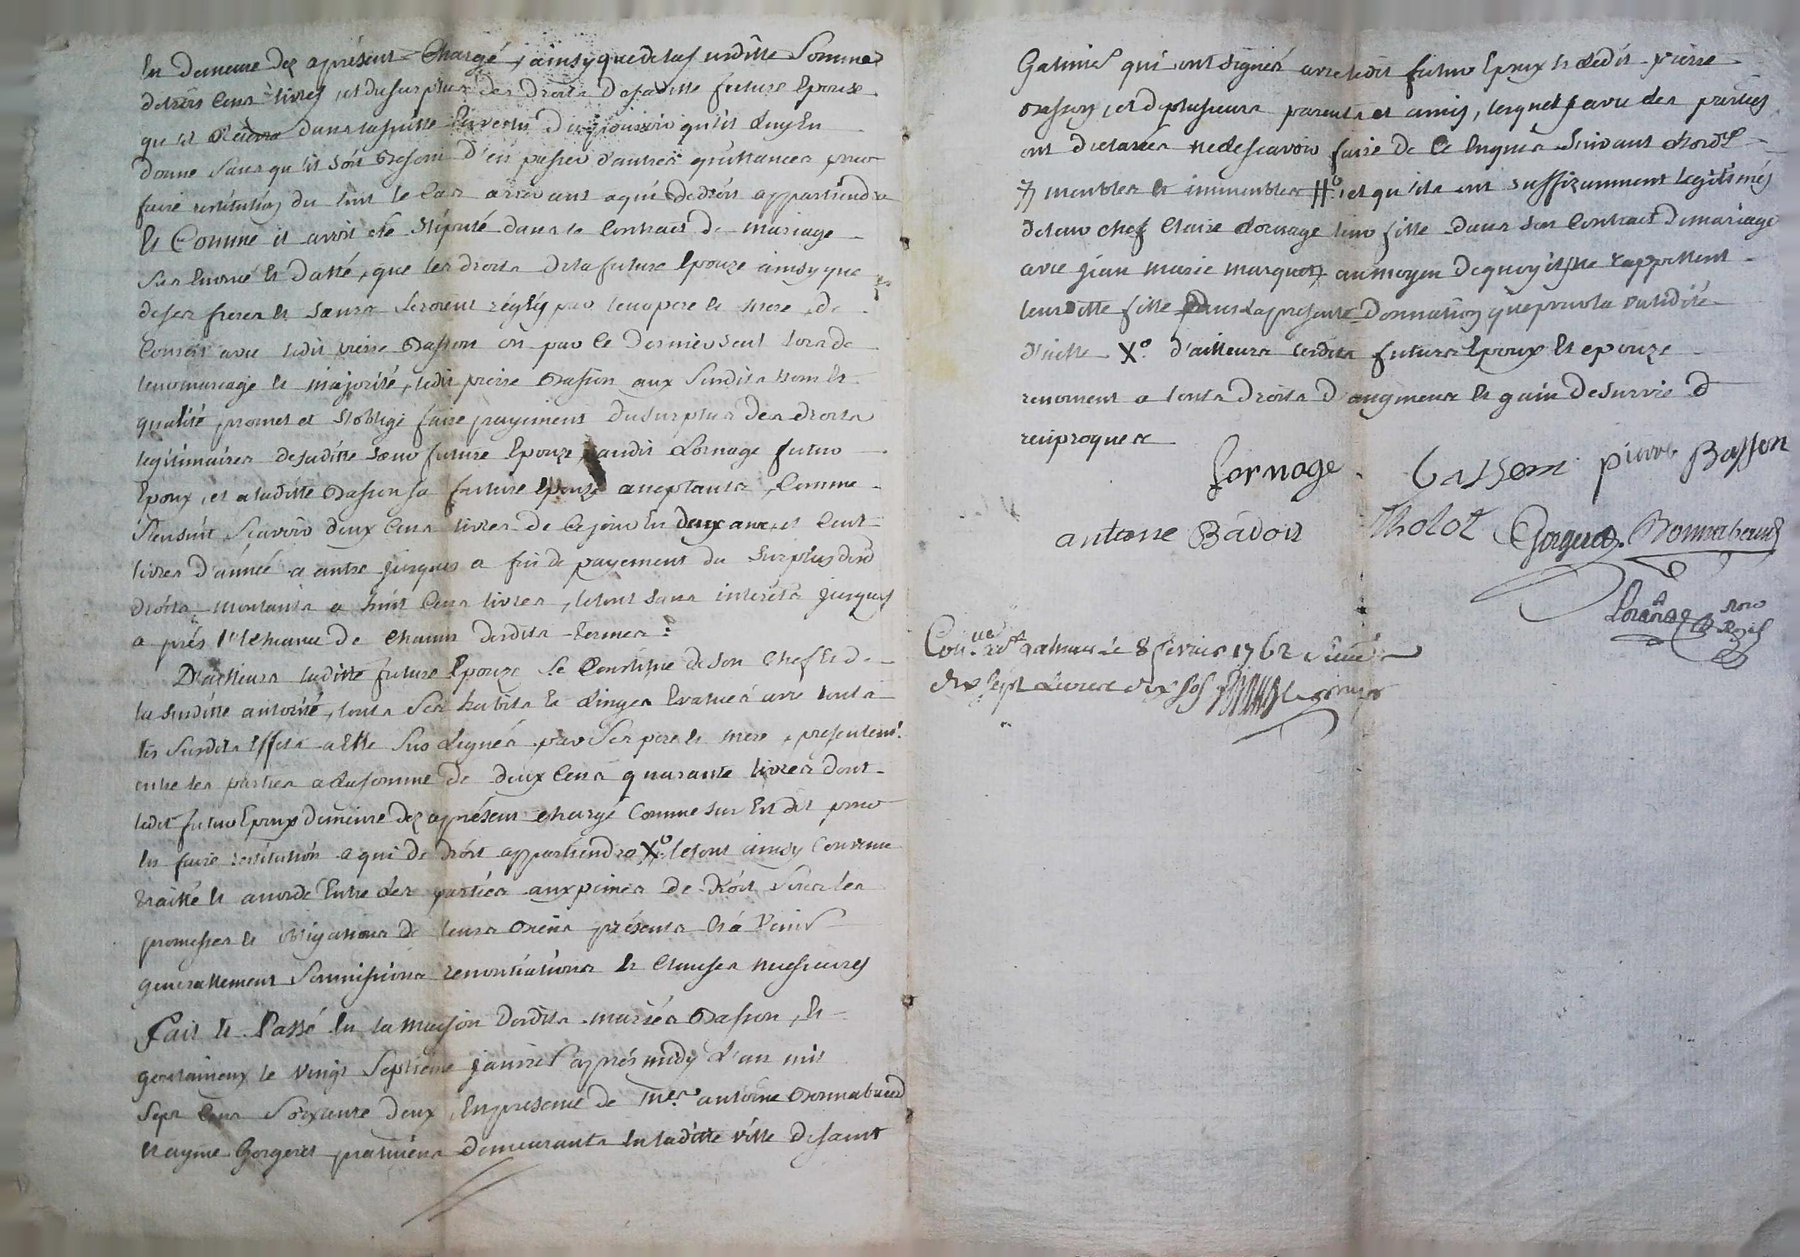 En demeure dez aprésent Chargé, ainsy que delasusditte Somme
detrois Cens livres, et du surplus des Droits desaditte future Epouse
qu'il Recevra dans lasuitte En vertu du pouvoir qu'il luy En
donne Sans qu'il soit Besoin D'en passer d'autres quittances pour
faire restitution du tout le Cas arrivant a qui dedroit appartiendra
Et Comme il avoit eté Stipulé dans le Contract de mariage
Sus Enoncé Et Datté, que les droits dela future Epouze ainsy que
deses freres Et Sœurs Seroient réglés par leur pere Et Mere, de
Concert avec ledit pierre Basson ou par Ce Dernier seul Lors de
leur mariage Et majorité, ledit pierre Basson aux Susdits Nom Et
qualité promet et S'oblige faire payement Du surplus des droits
legitimaires desaditte Sœur future Epouze, audit Lornage futur
Epoux, et a laditte Basson sa future Epouze acceptants, Comme
S'ensuit Scavoir deux Cens livres de Cejour En deux ans, et Cent
livres d'année a autre jusques a fin de payement du Surplus desd
droits montants a huit Cens livres, letout sans interets jusques
a prés l'Echeance de Chacun desdits termes.
D'ailleurs laditte future Epouze Se Constitue de son Chef Et de
la susditte autorité, touts Ses habits Et Linges Evalués avec touts
les Susdits Effets a Elle Sus Legués par Ses pere Et mere, presentem.t
entre les parties a la somme de deux Cens quarante livres dont
ledit futur Epoux demeure dez aprésent chargé Comme sus Est dit pour
En faire restitution a qui de droit appartiendra X.o letout ainsy Convenu
traitté Et accordé Entre Les parties aux peines de Droit Sous les
promesses Et obligations de leurs Biens présents Et á Venir
generallement Soumissions renontiations Et Clauses necessaires
Fait Et Passé En la Maison desdits mariés Basson, Et
le vingt Septieme janvier aprés midy L'an mil
Sept Cens Soixante deux, En presence de Me. antoine Bonnabaud
Et aymé Gorgeret praticiens demeurants En laditte ville de saint
Galmier qui ont signés avec ledit futur Epoux Et Ledit pierre
Basson, et de plusieurs parents et amis, lesquels avec des parties
ont declarées ne le scavoir faire de Ce Enquis Suivant L'ord.ce
meubles Et immeubles #.o et qu'ils ont suffizamment Legitimés
de leur chef Claire Lornage leur fille dans son Contract de mariage
avec jean marie marquot, au moyen dequoy ils ne rappellent
leur ditte fille dans la presente Donnation que pour la validité
d'icelle X.o d'ailleurs lesdits futurs Epoux Et epouze
renoncent a touts droits d'augment Et gain de survie
reciproques
Lornage. Basson pierre Basson
antoine Badoit Tholot Gorgeret Bonnabaud
Cont.lé a St galmier le 8 fevrier 1762
dix sept Livres dix sols